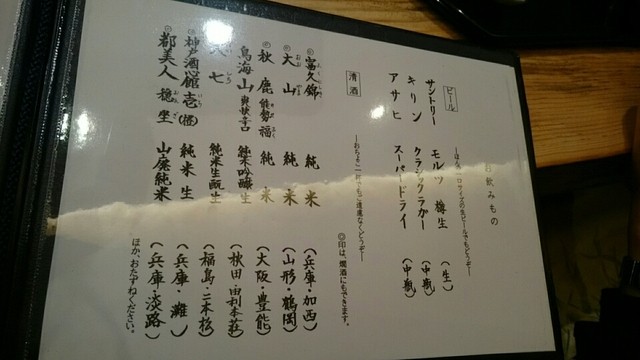 お飲みもの
ビール
―ほんの一口サイズの生ビールでもどうぞ―
サントリー モルツ 樽生 (生)
キリン クラシックラガー (中瓶)
アサヒ スーパードライ (中瓶)
清酒
―おちょこ一杯でもご遠慮なくどうぞ―
◎印は、燗酒にもできます。
富久錦 純米 (兵庫・加西)
大山 純米 (山形・鶴岡)
秋鹿 能勢福 純米 (大阪・豊能)
鳥海山 爽快辛口 純米吟醸生 (秋田・由利本荘)
七 純米生酛生 (福島・二本松)
神戸酒心館 壱 純米生 (兵庫・灘)
都美人 穏坐 山廃純米 (兵庫・淡路)
ほか、おたずねください。